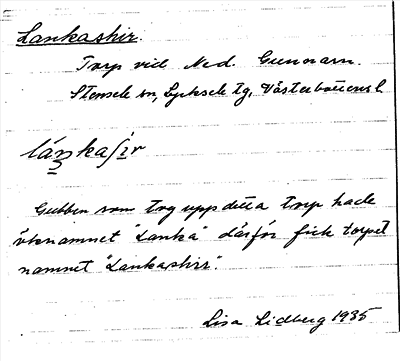 Lankashir.
Torp vid Ned. Gunnarn.
Stensele sn, Lycksele tg. Västerbottens l.
Gubben som tog upp detta torp hade
öknamnet "Lanka" därför fick torpet
namnet "Lankashir".
Lisa Lidberg 1935